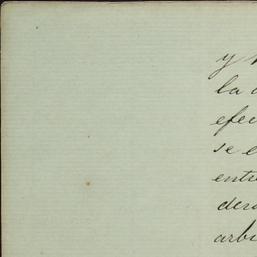 y
la
efec
se e
entre
dere
arbi